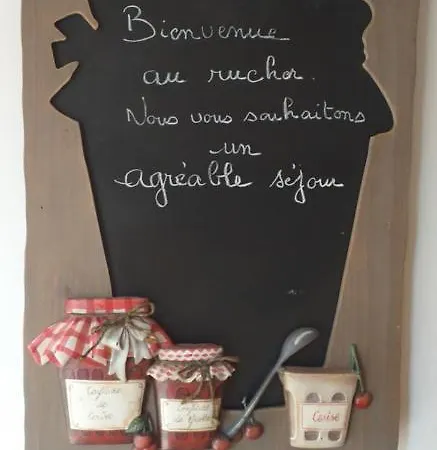 Bienvenue
au rucher.
Nous vous souhaitons
un
agréable séjour
Confiture
de
Cerise
Confiture
Cerise